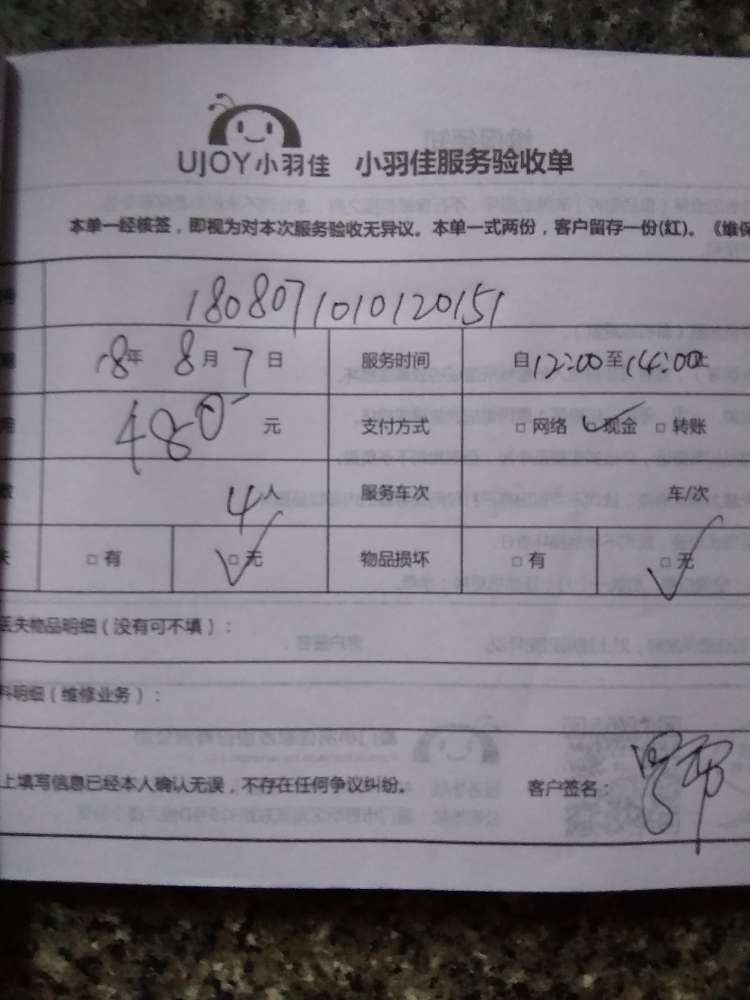 UJOY小羽佳 小羽佳服务验收单
本单一经核签，即视为对本次服务验收无异议。本单一式两份，客户留存一份(红)。《维保
1808071010120151
18年 8月 7日 服务时间 自12:00至14:00止
480 元 支付方式 □ 网络 ☑现金 □ 转账
4人 服务车次 车/次
□ 有 ☑无 物品损坏 □ 有 ☑无
丢失物品明细（没有可不填）：
料明细（维修业务）：
上填写信息已经本人确认无误，不存在任何争议纠纷。 客户签名：